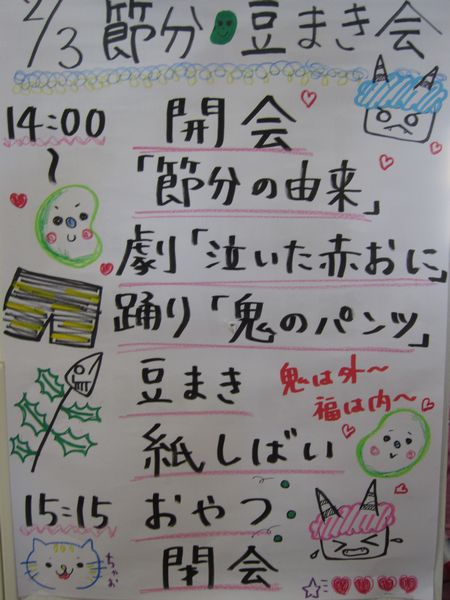 2/3 節分 豆まき会
14:00 開会
～
「節分の由来」
劇「泣いた赤おに」
踊り「鬼のパンツ」
豆まき
鬼は外～
福は内～
紙しばい
15:15 おやつ
閉会
ちゃお